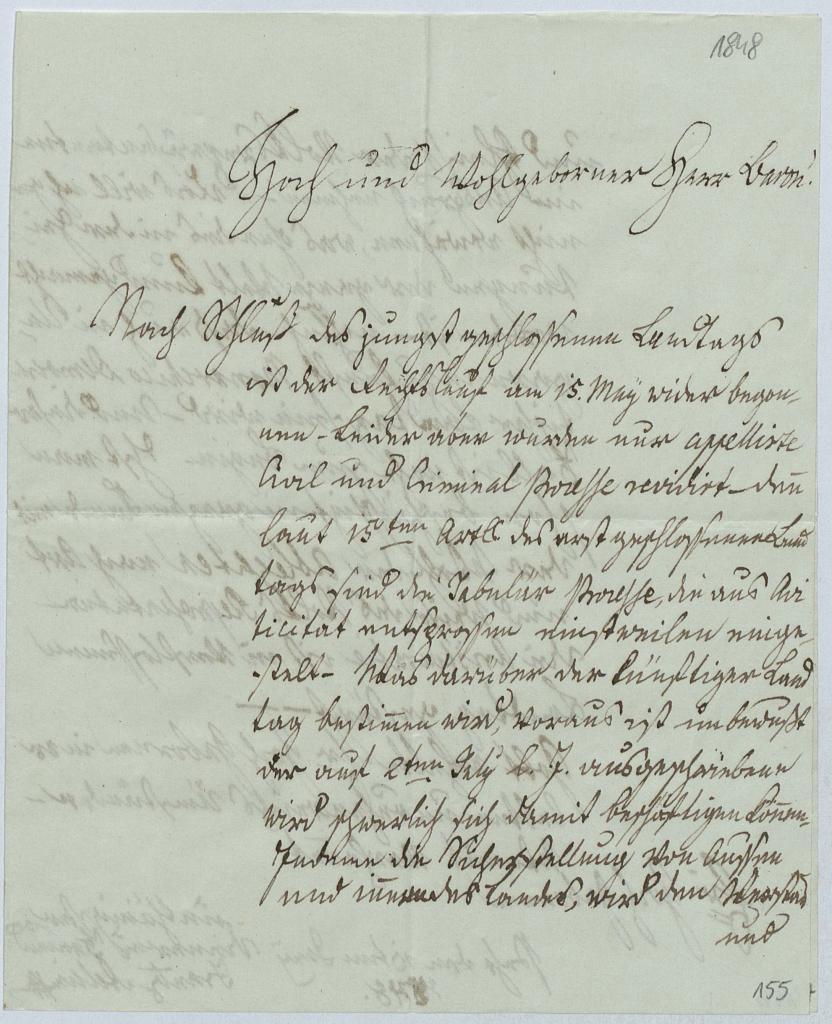 1848
Hoch und Wohlgeborner Herr Baron!
Nach Schluß des jungst geschlossenen Landtags
ist der Rechtslauf am 15. May wider begon-
nen - Leider aber wurden nur appellirte
Civil und Criminal Processe revidirt - denn
laut 15ten Artls des erst geschlossenen Land
tags sind die Tabular Processe, die aus Avi
ticität entsprossen einstweilen einge-
stelt - Was darüber der künftiger Land
tag bestimen wird, voraus ist unbewußt
der auf 2ten July l. J. ausgeschriebene
wird schwerlich sich damit beschäftigen könen-
Indeme die Sicherstellung von Aussen
und inern des Landes, wird den Verstand
und
155